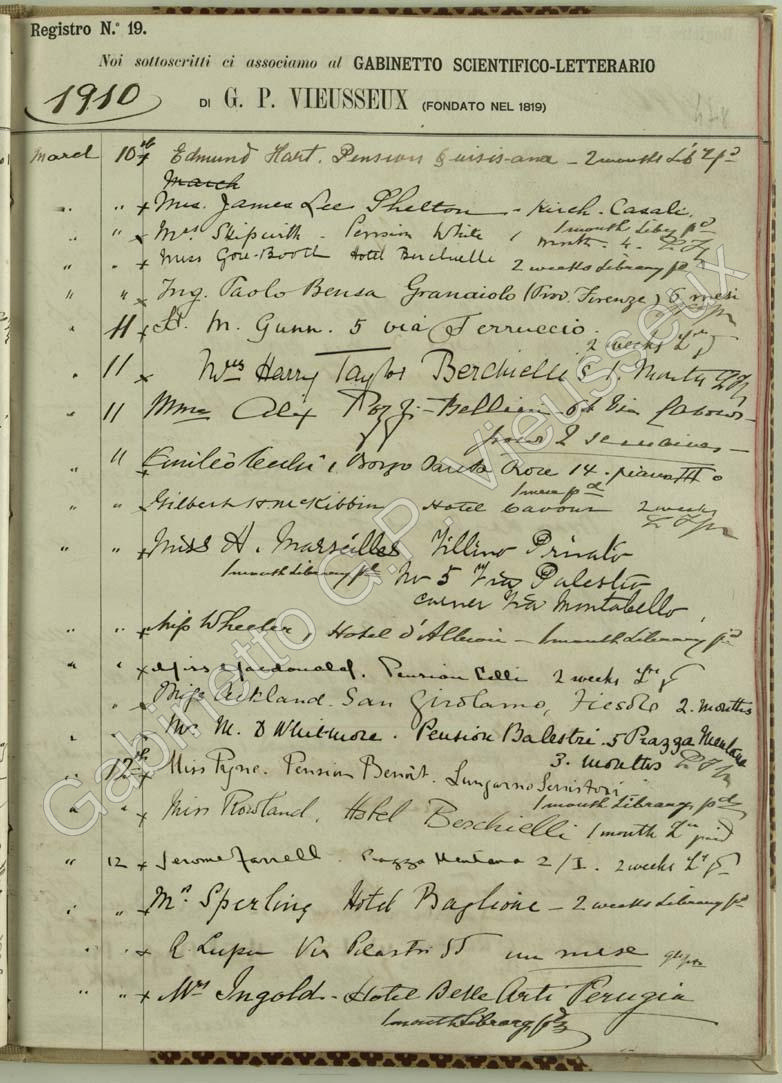 Registro N.º 19.
Noi sottoscritti ci associamo al GABINETTO SCIENTIFICO-LETTERARIO
1910
DI G. P. VIEUSSEUX (FONDATO NEL 1819)
March 10th x Edmund Hart. Pension Quisisana - 2 months Lib
March
" " x Mrs. James Lee Shelton - Kirch. Casali.
" " x Mrs Skipwith - Pension White, 1 month Liby pd
month
" " x Miss Gore-Booth Hotel Berchielle 2 weeks Library pd
" " x Ing. Paolo Bensa Granaiolo (Prov. Firenze) 6 mesi
" 11 x M. Gunn. 5 via Ferruccio.
2 weeks
" 11 x Mrs Harry Taylor Berchielli's 1. Month
" 11 Mme Alex Pozzi-Bellini Via Cavour
pour 2 semaines
" 11 x Emilio Cecchi, Borgo Santa Croce 14. piano III o
1 mese pd
" " Gilbert H McKibbin Hotel Cavour 2 weeks
" " x Miss H. Marseilles Villino Privato
1 month Library pd No 5 Via Palestro
corner Via Montabello
" " x Miss Wheeler, Hotel d'Albion - 1 month Library pd
" " x Miss Macdonald. Pension Celli 2 weeks
" Miss Ackland. San Girolamo, Fiesole 2. months
" " x Mrs M. D Whitmore. Pension Balestri. 5 Piazza Mentana
3. months
" 12th x Miss Pyne. Pension Benoit. Lungarno Serristori
1 month Library pd
" " x Miss Rowland. Hotel Berchielli 1 month paid
" 12 x Jerome Farrell. Piazza Mentana 2/I. 2 weeks
" " x Mrs Sperling Hotel Baglione - 2 weeks Library pd
" " x R. Lupu Via Pilastri 55 un mese
" " x Mrs Ingold - Hotel Belle Arti Perugia
1 month Library pd
Gabinetto G.P. Vieusseux